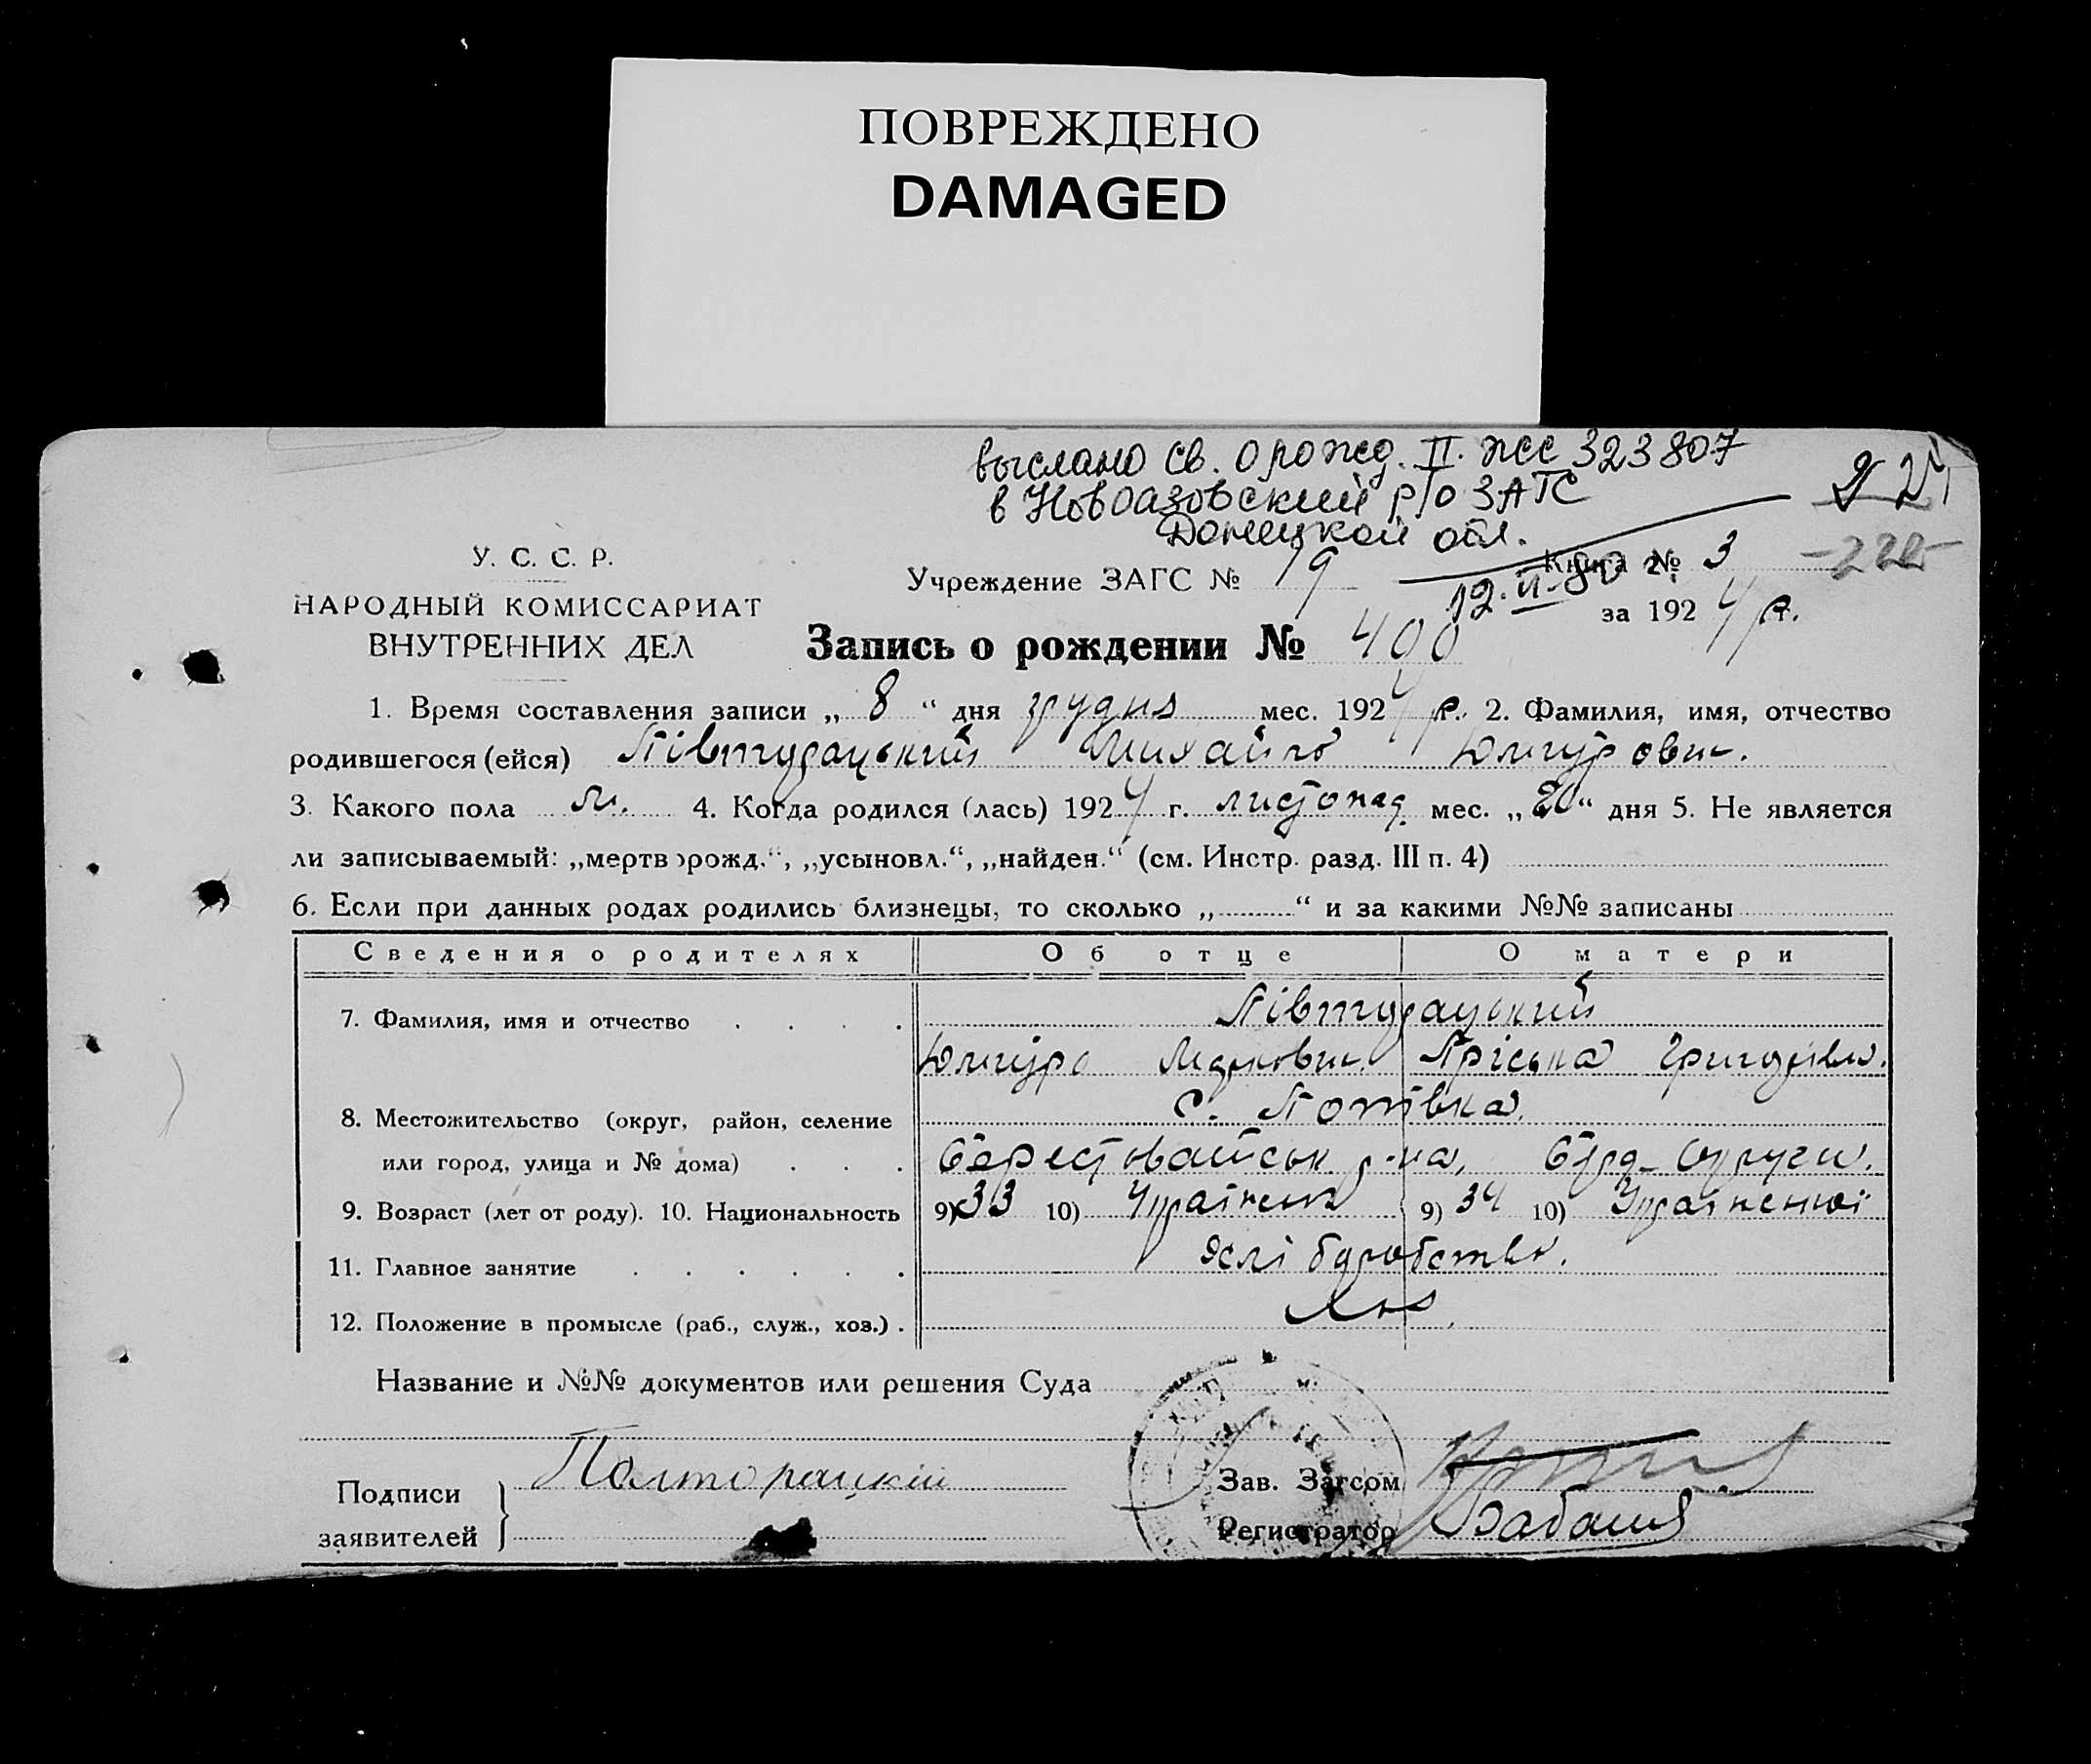 ПОВРЕЖДЕНО
DAMAGED
выслано св. о рожд. II. ЖС 323807
в Новоазовский р/о ЗАГС
Донецкой обл.
12.VI.80 г.
-222-
У. С. С. Р.
НАРОДНЫЙ КОМИССАРИАТ
ВНУТРЕННИХ ДЕЛ
Учреждение ЗАГС № 19
Книга № 3
за 1924 р.
Запись о рождении № 400
1. Время составления записи „ 8 “ дня грудня мес. 1924 р. 2. Фамилия, имя, отчество
родившегося (ейся) Півторацький Михайло
3. Какого пола м. 4. Когда родился (лась) 1924 г. листопад. мес. „20“ дня 5. Не является
ли записываемый: „мертворожд.“, „усыновл.“, „найден.“ (см. Инстр. разд. III п. 4)
6. Если при данных родах родились близнецы, то сколько „ “ и за какими №№ записаны
Сведения о родителях Об отце О матери
7. Фамилия, имя и отчество Півторацький
Пріська Григорівна.
8. Местожительство (округ, район, селение с. Попівка.
или город, улица и № дома) Берестоватськ. р-на, Бердь округи.
9. Возраст (лет от роду). 10. Национальность 9) 33 10) Українець 9) 34 10) Української
11. Главное занятие хліборобство.
12. Положение в промысле (раб., служ., хоз.)
Название и №№ документов или решения Суда
Подписи
заявителей
Полторацкій
Зав. Загсом
Регистратор Бабаш